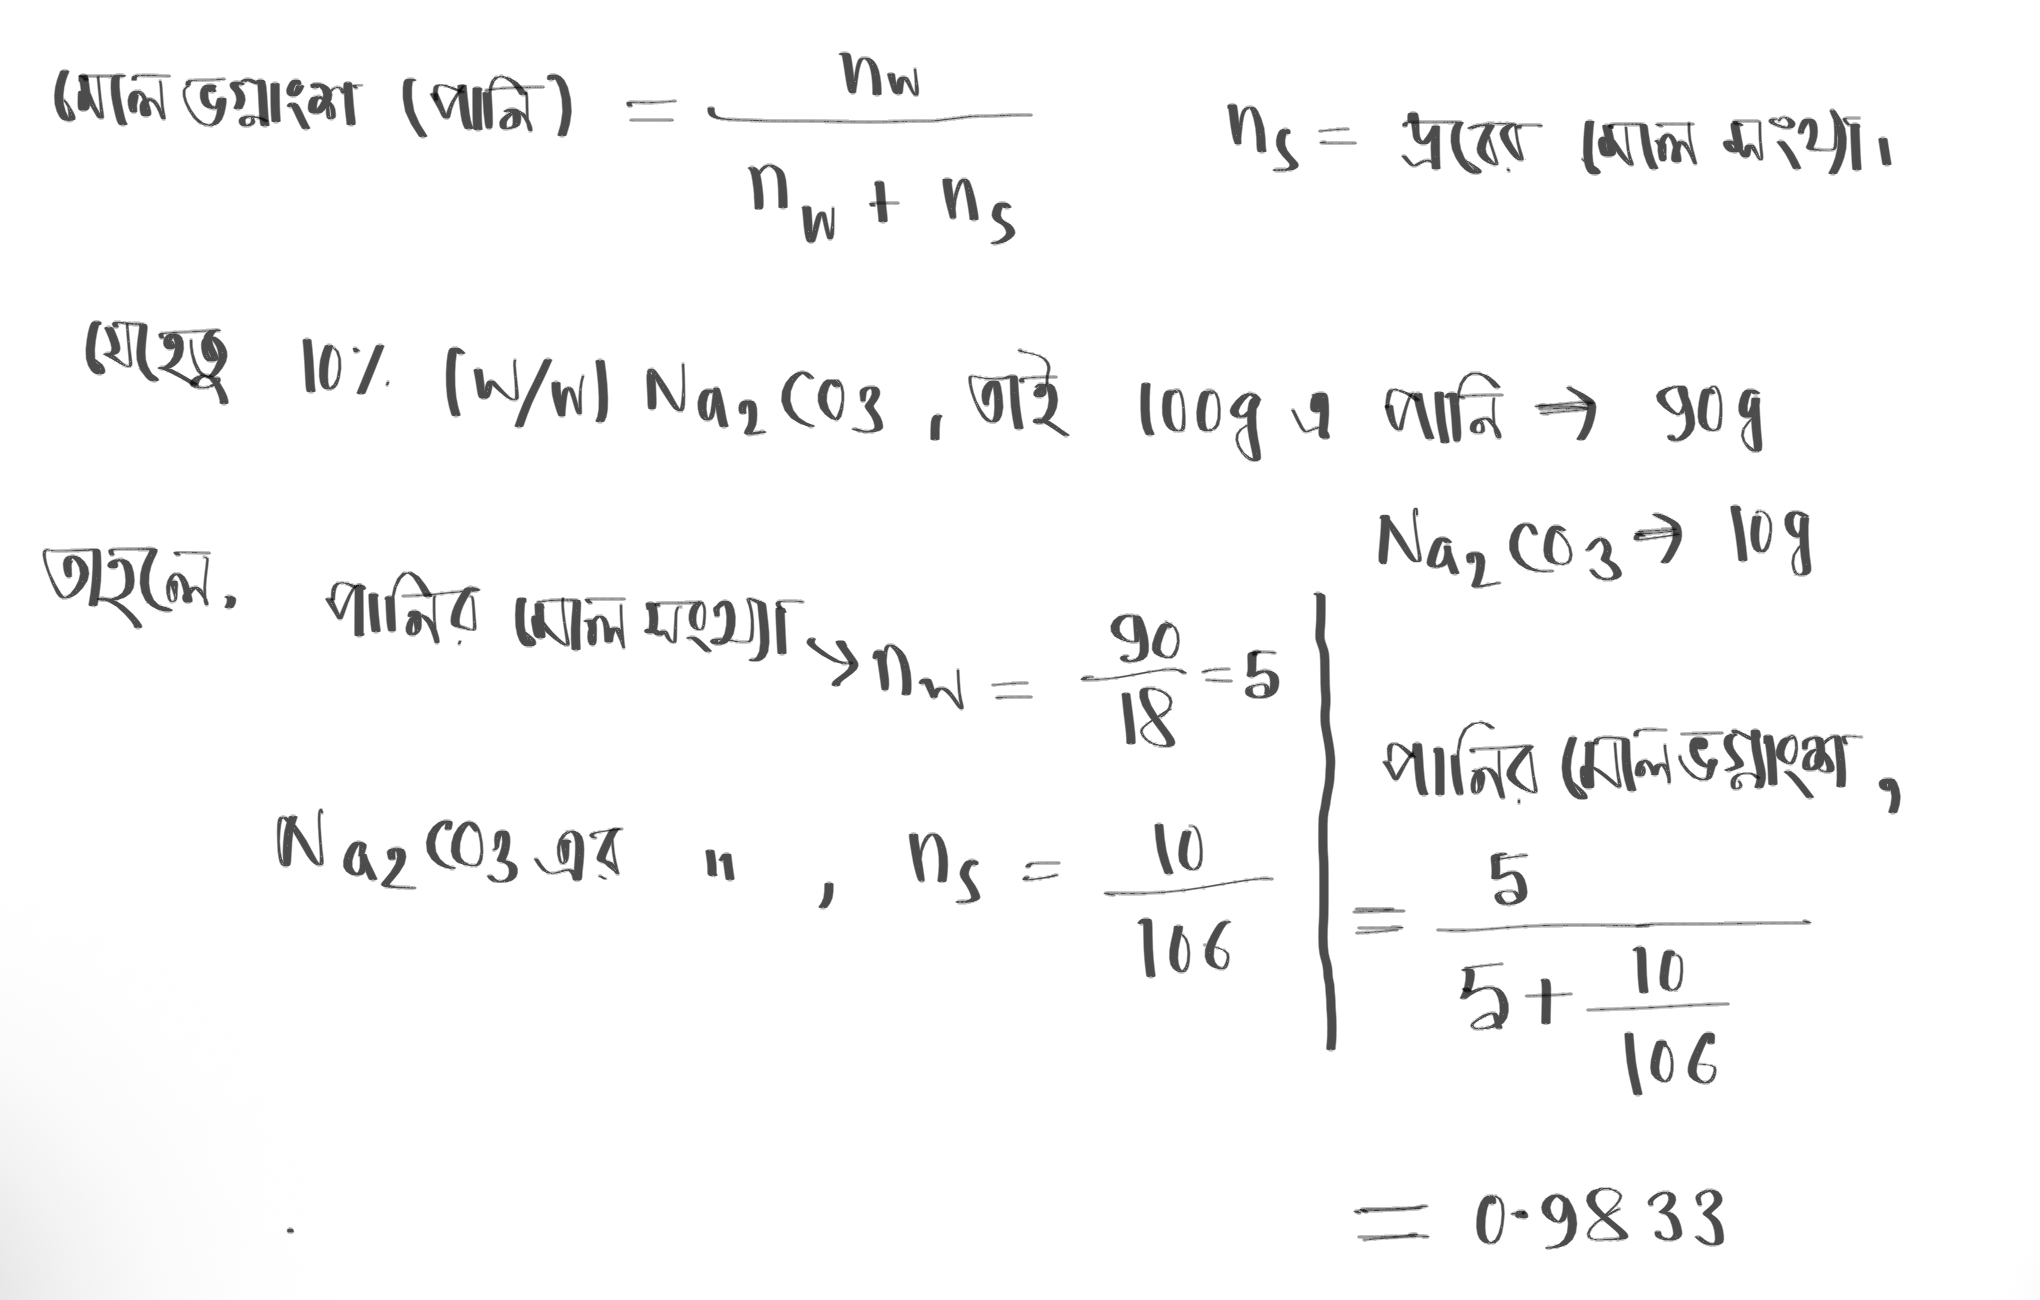 মোল ভগ্নাংশ (পানি) = nw / (nw + ns)
ns = দ্রবের মোল সংখ্যা।
যেহেতু 10% (w/w) Na2CO3, তাই 100g এ পানি → 90g
Na2CO3 → 10g
তাহলে, পানির মোল সংখ্যা → nw = 90/18 = 5
Na2CO3 এর " , ns = 10/106
পানির মোল ভগ্নাংশ,
= 5 / (5 + 10/106)
= 0.9833